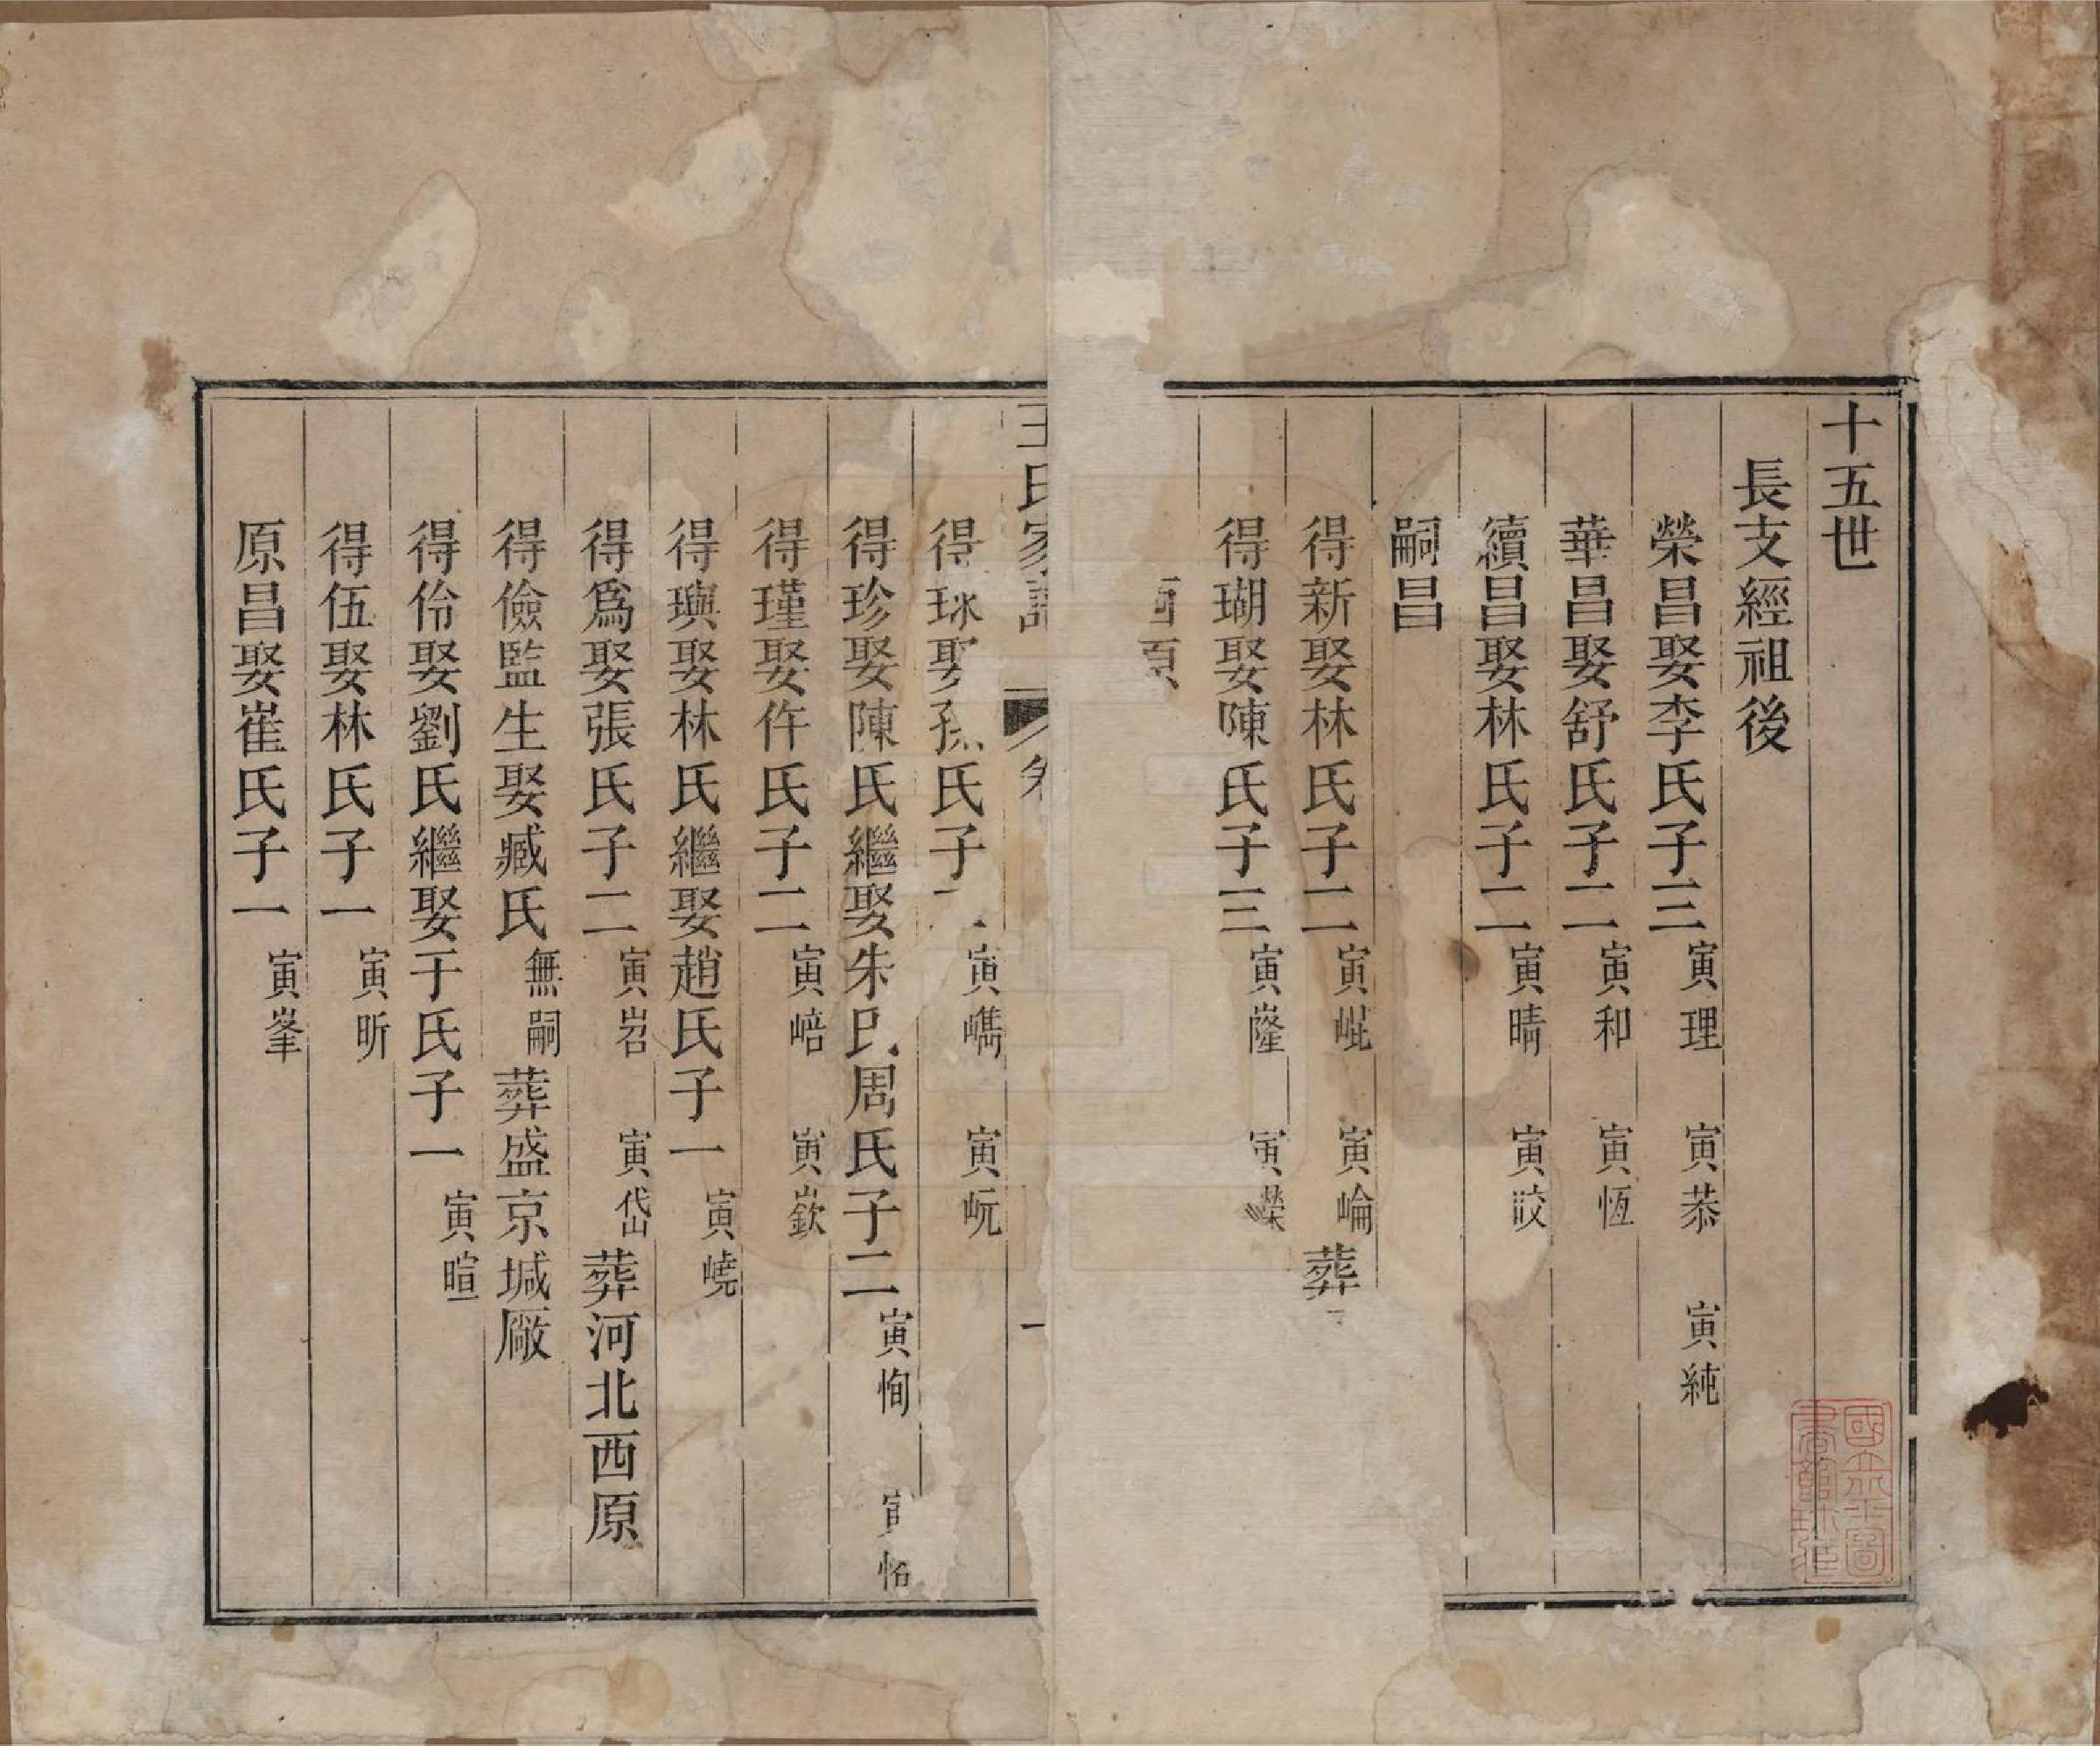 十五世
長支經祖後
榮昌娶李氏子三 寅理 寅恭 寅純
華昌娶舒氏子二 寅和 寅恆
續昌娶林氏子二 寅晴 寅晈
嗣昌
得新娶林氏子二 寅崐 寅崘 葬
得瑚娶陳氏子三 寅嶐 寅嶸
西原
王氏家譜 卷 一
得球娶孫氏子二 寅嶲 寅岏
得珍娶陳氏繼娶朱氏周氏子二 寅恂 寅恪
得瑾娶仵氏子二 寅㟝 寅嶔
得璵娶林氏繼娶趙氏子一 寅嶢
得爲娶張氏子二 寅岧 寅岱 葬河北西原
得儉監生娶臧氏 無嗣 葬盛京堿廠
得伶娶劉氏繼娶于氏子一 寅暄
得伍娶林氏子一 寅昕
原昌娶崔氏子一 寅峯
國立北平圖書館珍藏